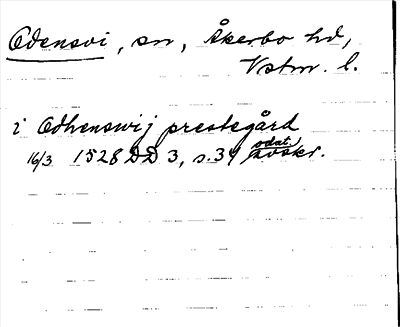 Odensvi, sn, Åkerbo hd,
Vstm. l.
i Odhenswij prestegård
16/3 1528 DD 3, s. 39 odat. avskr.